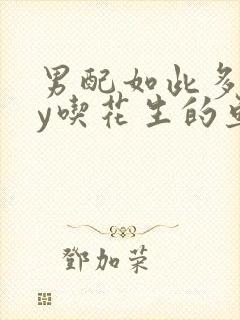 男配如此多
y喫花生的
鄧加荣